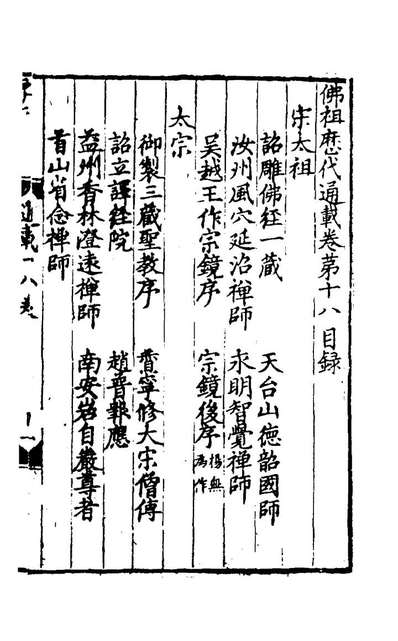 佛祖歷代通載卷第十八目錄
宋太祖
詔雕佛經一藏　天台山德韶國師
汝州風穴延沼禪師　永明智覺禪師
吳越王作宗鏡序　宗鏡後序楊無為作
太宗
御製三藏聖教序　贊寧修大宋僧傳
詔立譯經院　趙普報應
益州香林澄遠禪師　南安岩自嚴尊者
首山省念禪師
通載十八卷